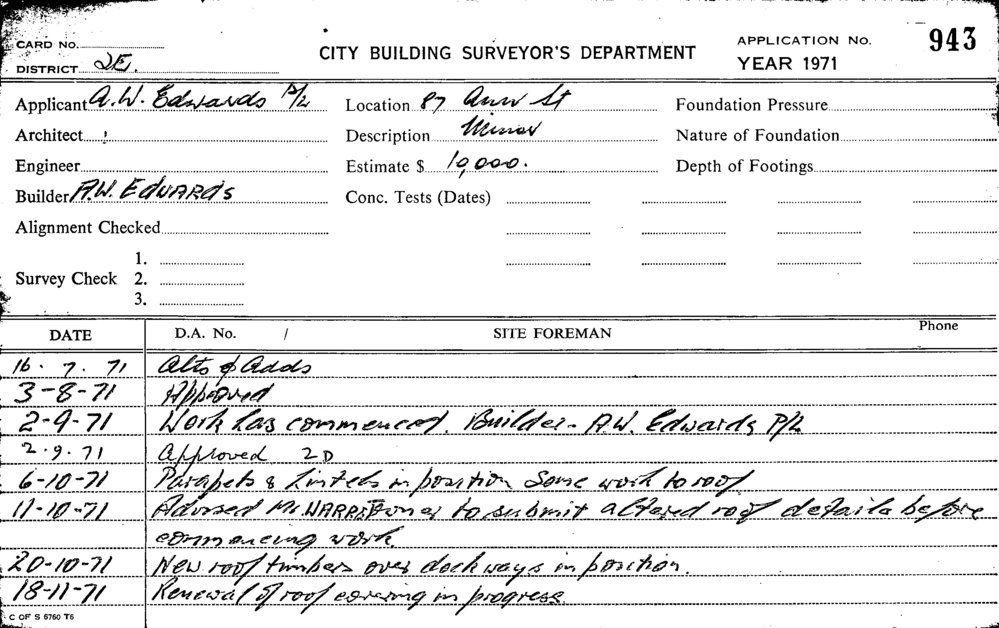 CARD NO.
DISTRICT 2E.
CITY BUILDING SURVEYOR'S DEPARTMENT
APPLICATION No. 943
YEAR 1971
Applicant A.W. Edwards P/L
Location 87 Ann St
Foundation Pressure
Architect
Description Minor
Nature of Foundation
Engineer
Estimate $ 10,000.
Depth of Footings
Builder A.W. EDWARDS
Conc. Tests (Dates)
Alignment Checked
1.
Survey Check 2.
3.
DATE D.A. No. / SITE FOREMAN Phone
16. 7. 71 Alts & Adds
3-8-71 Approved
2-9-71 Work has commenced. Builder- A.W. Edwards P/L
2.9.71 Approved 2D
6-10-71 Parapets & Lintels in position Some work to roof
11-10-71 Advised Mr. to submit altered roof details before
commencing work.
20-10-71 New roof timbers over dock ways in position.
18-11-71 Renewal of roof covering in progress.
C OF S 6760 T6